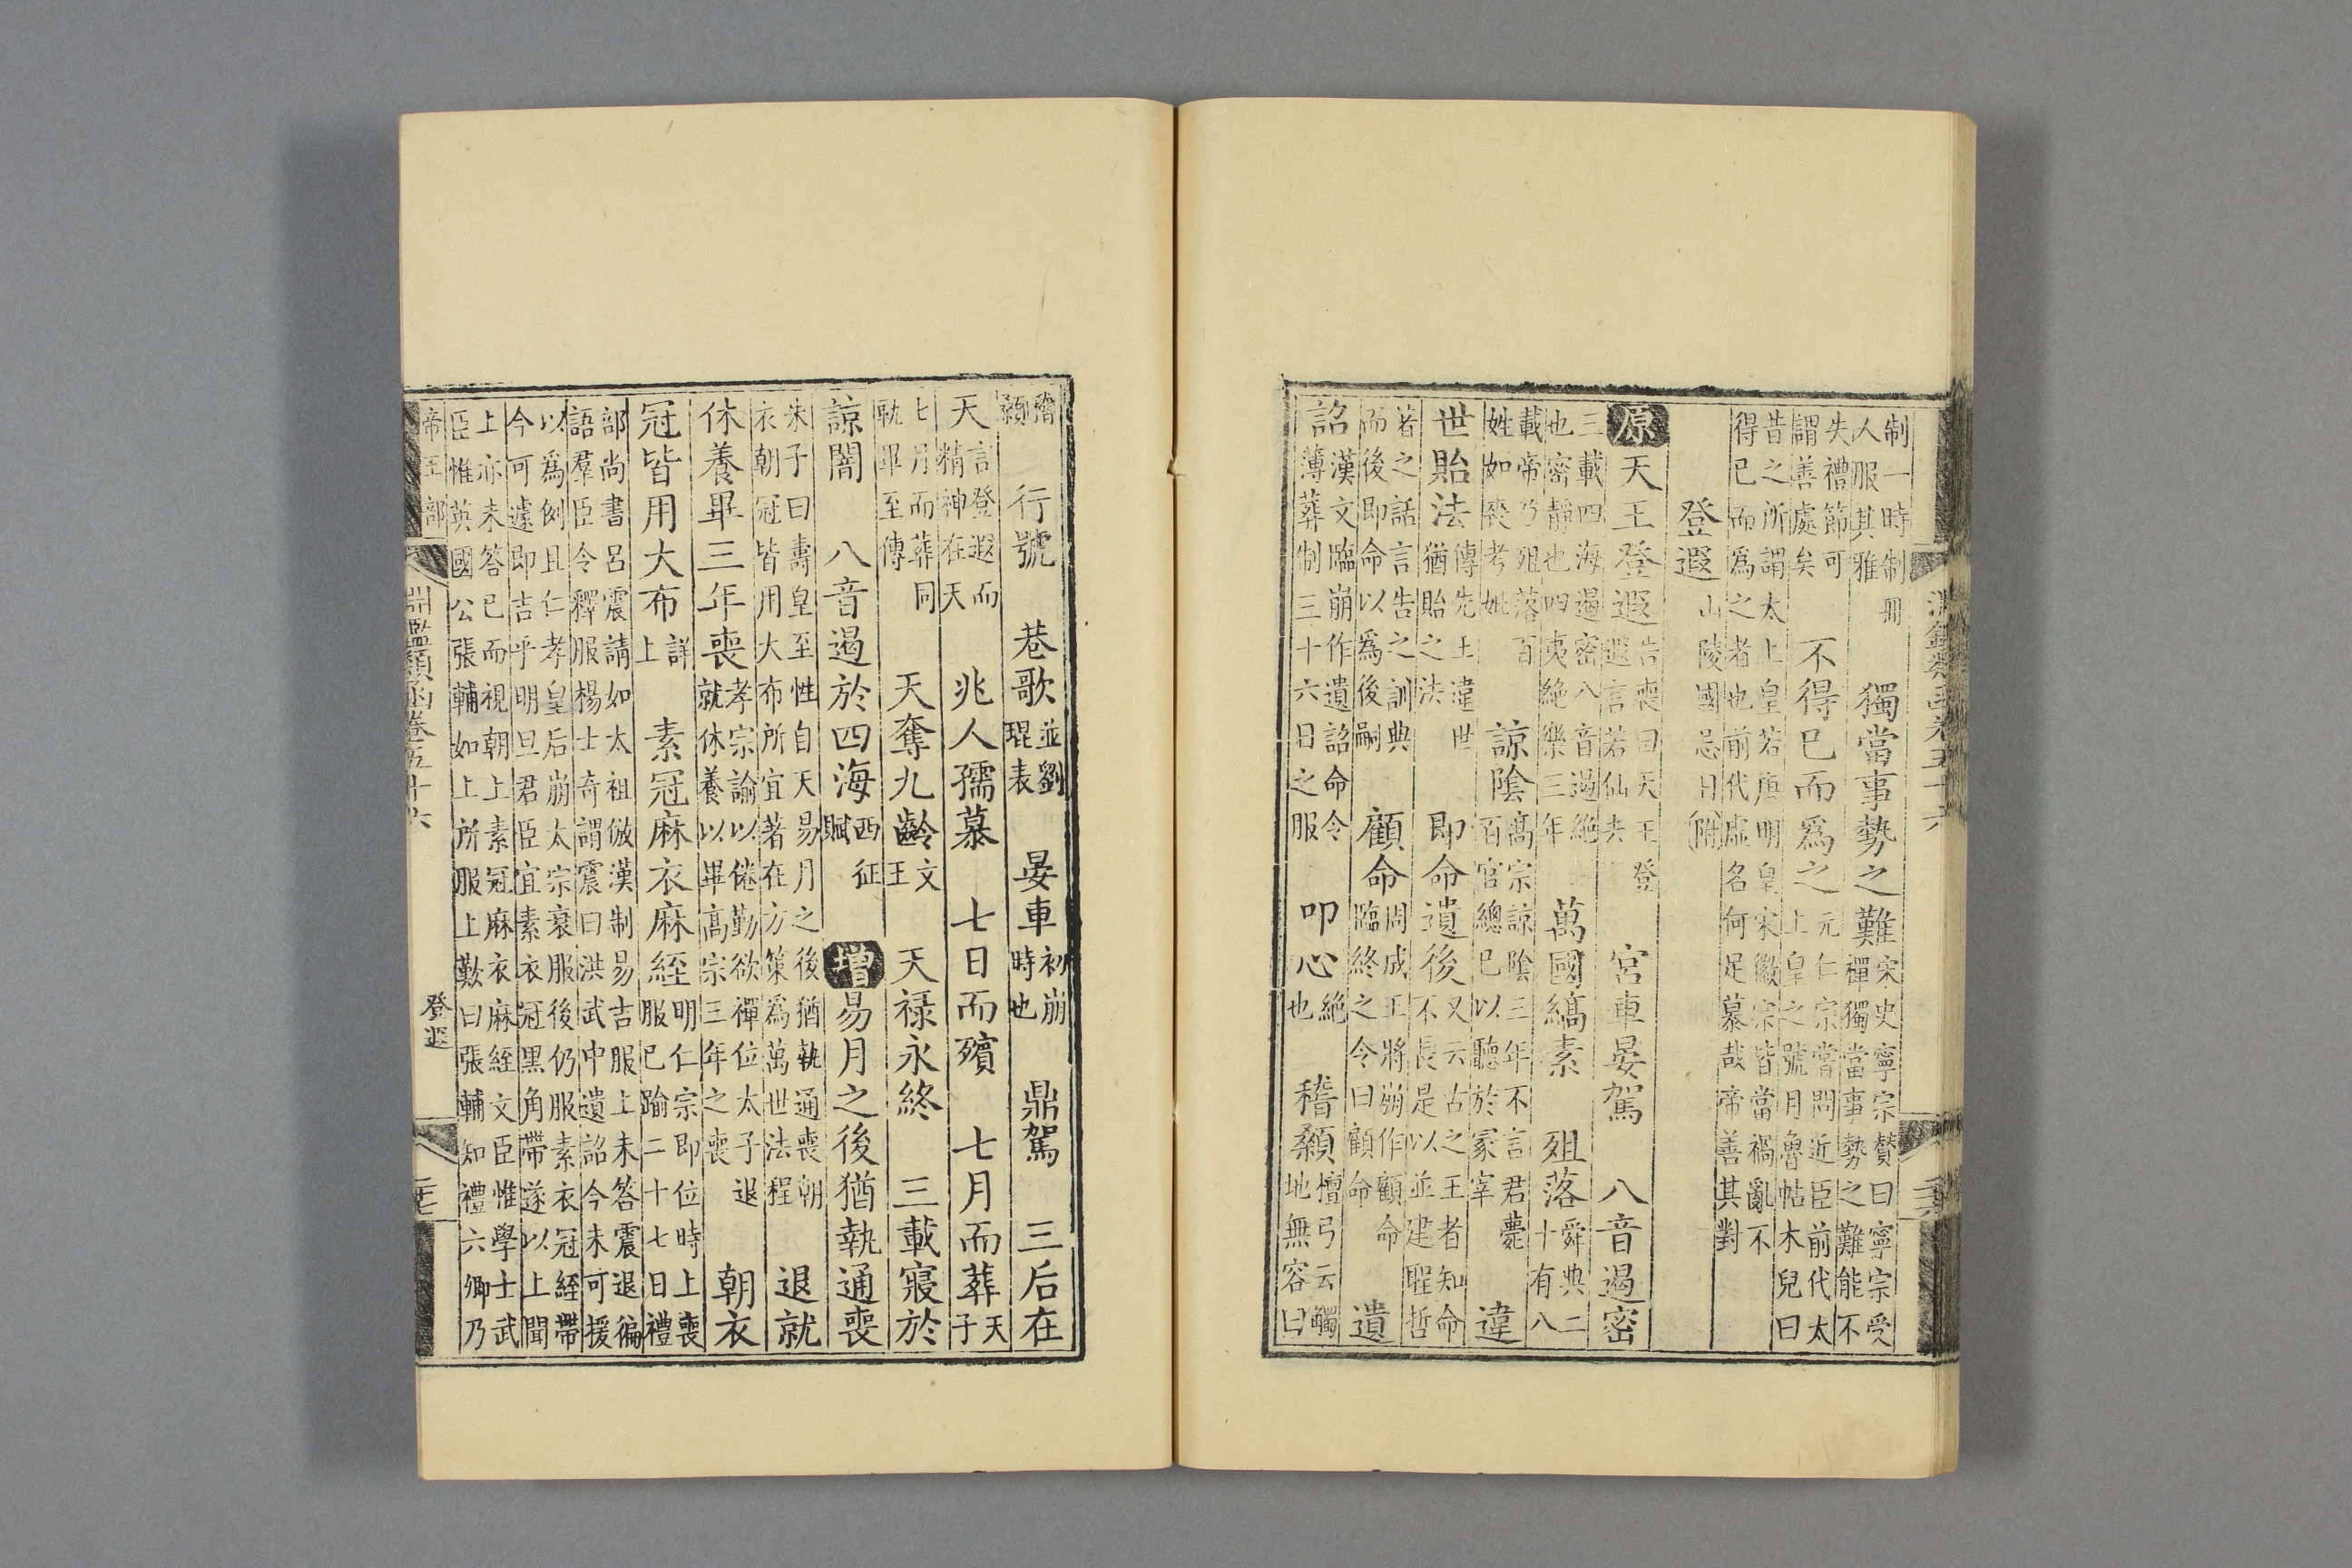 制一時制冊
人服其雅　獨當事勢之難宋史寧宗贊曰寧宗受
禪獨當事勢之難能不
失禮節可
謂善處矣　不得已而爲之元仁宗嘗問近臣前代太
上皇之號月魯帖木兒曰
昔之所謂太上皇若唐明皇宋徽宗皆當禍亂不
得已而爲之者也前代虛名何足慕哉帝善其對
登遐山陵國忌日附
原天王登遐告喪曰天王登
遐言若仙去　宮車晏駕　八音遏密
三載四海遏密八音遏絕
也密靜也四夷絕樂三年　萬國縞素　殂落舜典二
十有八
載帝乃殂落百
姓如喪考妣　諒陰高宗諒陰三年不言君薨
百官總已以聽於冢宰　違
世貽法傳先王違世
猶貽之法　即命遺後又云古之王者知命
不長是以並建聖哲
若之話言告之訓典
而後即命以爲後嗣　顧命周成王將崩作顧命
臨終之令曰顧命　遺
詔漢文臨崩作遺詔命令
薄葬制三十六日之服　叩心絕
也　稽顙檀弓云觸
地無容曰
稽
顙　行號　巷歌並劉
琨表　晏車初崩
時也　鼎駕　三后在
天言登遐而
精神在天　兆人孺慕　七日而殯　七月而葬天
子
七月而葬同
軌畢至傳　天奪九齡文
王　天祿永終　三載寢於
諒闇　八音遏於四海西征
賦　增易月之後猶執通喪
朱子曰壽皇至性自天易月之後猶執通喪朝
衣朝冠皆用大布所宜著在方策爲萬世法程　退就
休養畢三年喪孝宗諭以倦勤欲禪位太子退
就休養以畢高宗三年之喪　朝衣
冠皆用大布詳
上　素冠麻衣麻絰明仁宗即位時上喪
服已踰二十七日禮
部尚書呂震請如太祖倣漢制易吉服上未答震退徧
語羣臣令釋服楊士奇謂震曰洪武中遺詔今未可援
以爲例且仁孝皇后崩太宗衰服後仍服素衣冠絰帶
今可遽即吉乎明旦君臣宜素衣冠黑角帶遂以上聞
上亦未答已而視朝上素冠麻衣麻絰文臣惟學士武
臣惟英國公張輔如上所服上歎曰張輔知禮六卿乃
帝王部　淵鑑類函卷五十六　登遐